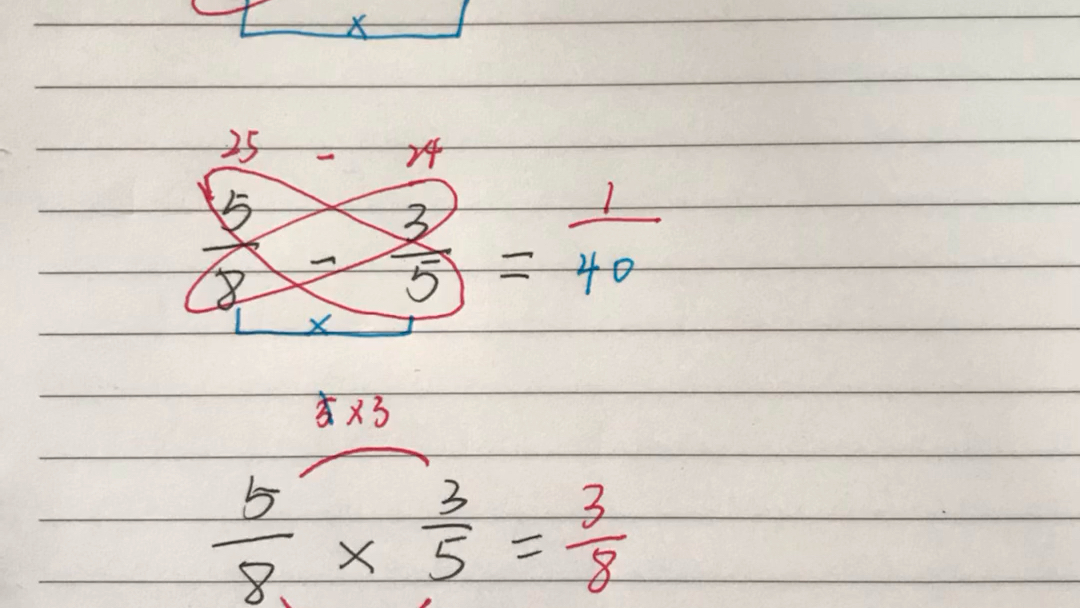 x
25 - 24
5/8 - 3/5 = 1/40
x
x 3
5/8 x 3/5 = 3/8